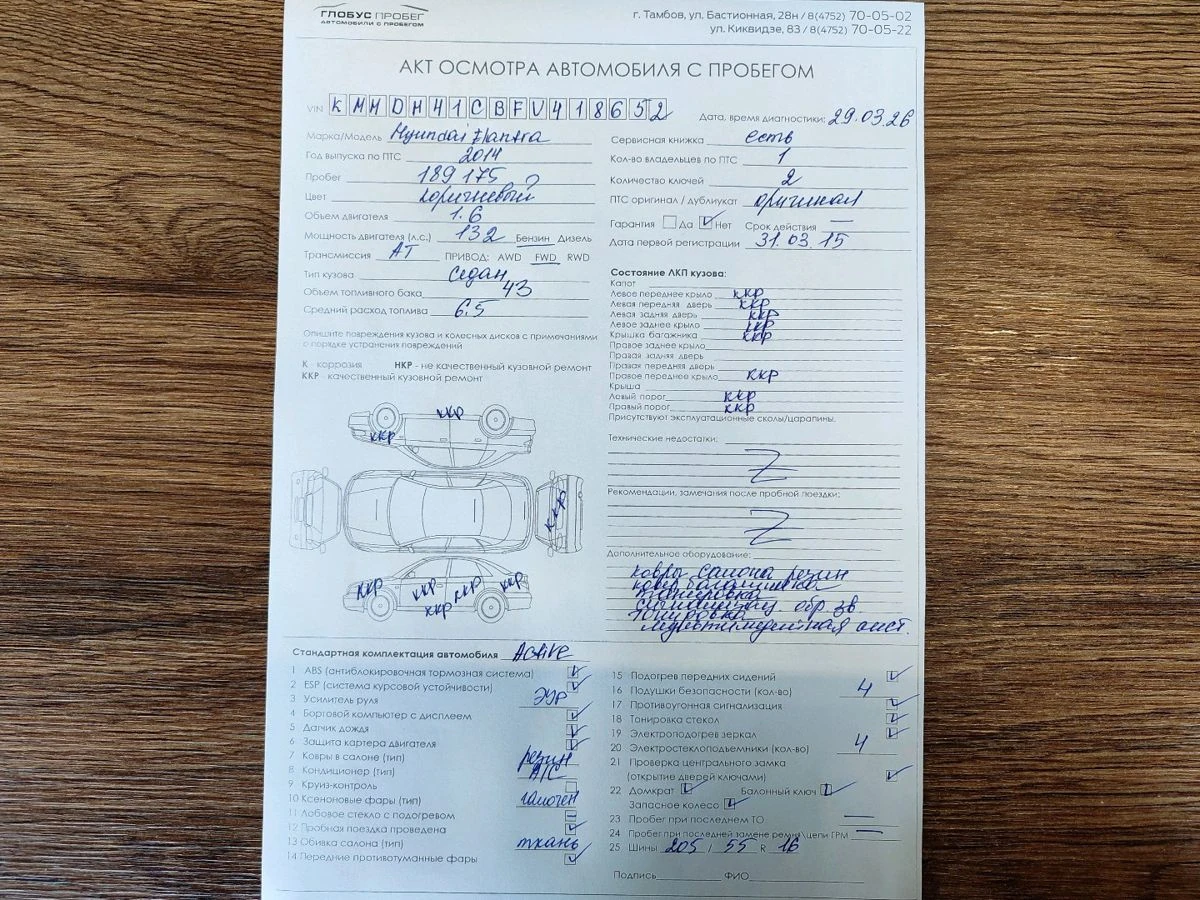 ГЛОБУС ПРОБЕГ
АВТОМОБИЛИ С ПРОБЕГОМ
г. Тамбов, ул. Бастионная, 28н / 8(4752) 70-05-02
ул. Киквидзе, 83 / 8(4752) 70-05-22
АКТ ОСМОТРА АВТОМОБИЛЯ С ПРОБЕГОМ
VIN KMHDH41CBFU418652
Дата, время диагностики: 29.03.26
Марка/Модель Hyundai Elantra
Год выпуска по ПТС 2014
Пробег 189 175
Цвет коричневый
Объем двигателя 1.6
Мощность двигателя (л.с.) 132 Бензин Дизель
Трансмиссия АТ ПРИВОД: AWD FWD RWD
Тип кузова Седан
Объем топливного бака 43
Средний расход топлива 6.5
Опишите повреждения кузова и колесных дисков с примечаниями
о порядке устранения повреждений
К - коррозия НКР - не качественный кузовной ремонт
ККР - качественный кузовной ремонт
ккр
ккр
ккр
ккр
ккр
ккр
ккр
ккр
Сервисная книжка есть
Кол-во владельцев по ПТС 1
Количество ключей 2
ПТС оригинал / дубликат оригинал
Гарантия Да Нет Срок действия —
Дата первой регистрации 31.03.15
Состояние ЛКП кузова:
Капот
Левое переднее крыло ккр
Левая передняя дверь ккр
Левая задняя дверь ккр
Левое заднее крыло ккр
Крышка багажника ккр
Правое заднее крыло
Правая задняя дверь
Правая передняя дверь
Правое переднее крыло ккр
Крыша
Левый порог ккр
Правый порог ккр
Присутствуют эксплуатационные сколы/царапины.
Технические недостатки:
Z
Рекомендации, замечания после пробной поездки:
Z
Дополнительное оборудование:
ковры салона резин
ковер багажника
тонировка
сигнализац обр. зв
мультимедийная сист.
Стандартная комплектация автомобиля Active
1 ABS (антиблокировочная тормозная система)
2 ESP (система курсовой устойчивости)
3 Усилитель руля ЭУР
4 Бортовой компьютер с дисплеем
5 Датчик дождя
6 Защита картера двигателя
7 Ковры в салоне (тип) резин
8 Кондиционер (тип) A/C
9 Круиз-контроль
10 Ксеноновые фары (тип) галоген
11 Лобовое стекло с подогревом —
12 Пробная поездка проведена
13 Обивка салона (тип) ткань
14 Передние противотуманные фары
15 Подогрев передних сидений
16 Подушки безопасности (кол-во) 4
17 Противоугонная сигнализация
18 Тонировка стекол
19 Электроподогрев зеркал
20 Электростеклоподъемники (кол-во) 4
21 Проверка центрального замка
(открытие дверей ключами)
22 Домкрат Балонный ключ
Запасное колесо
23 Пробег при последнем ТО —
24 Пробег при последней замене ремня/цепи ГРМ —
25 Шины 205 / 55 R 16
Подпись ФИО